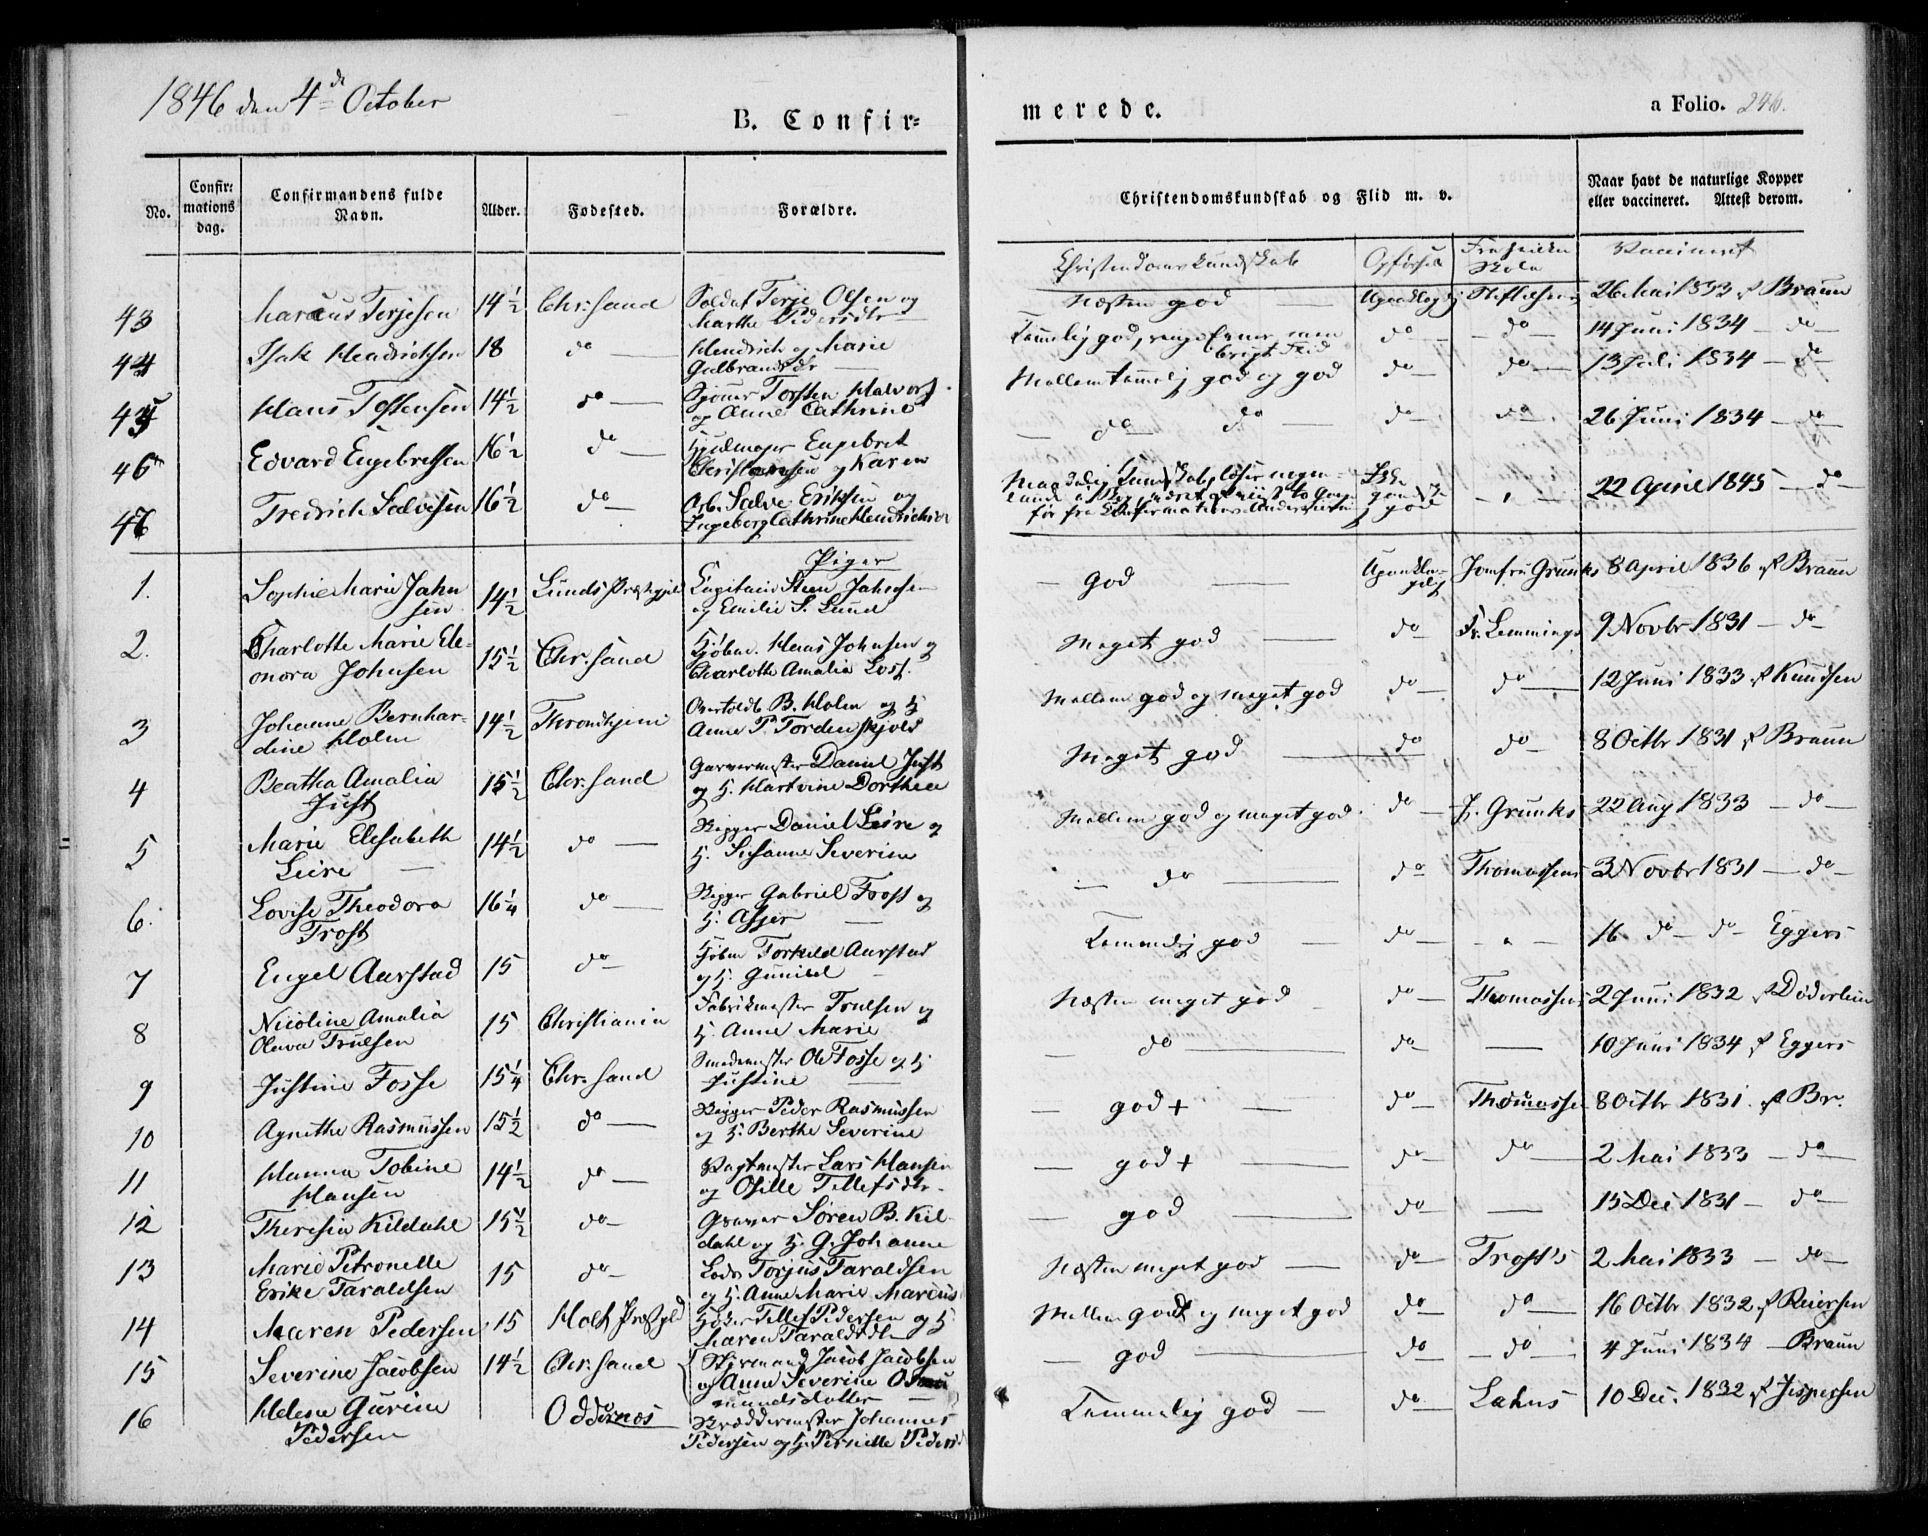 1846 den 4de October
B. Confir=
merede.
a Folio. 246.
No.
Confir=
mations
dag.
Confirmandens fulde
Navn.
Alder.
Fodested.
Forældre.
Christendomskundskab og Flid m. v.
Naar havt de naturlige Kopper
eller vaccineret. Attest derom.
Christendomskundskab
Opførsel
Skole
Vaccineret
43 Marcus Terjesen 14½ Chr:sand Soldat Terje Olsen og
Marthe Pedersdtr
Næsten god 26 Mai 1833 Braun
44 Isak Hendrichsen 18 do Hendrich og Marie
Gulbrandsdr
Temmelig god, ringe Evner men
do do 14 Juni 1834 do
45 Hans Tostensen 14½ do Torsten Halvors
og Anne Cathrine
Mellem temmelig god og god do do 13 Juli 1834 do
46 Edvard Engebretsen 16½ do Engebret
og Karen
do do do do 26 Juni 1834 do
47 Fredrich Salvesen 16½ do Arb. Salve Eriksen og
Ingeborg Cathrine Hendrichs
Ikke
god
22 April 1845 do
Piger
1. Sophie Marie Jahn
sen 14½ Lunds Præstegjeld Capitain Steen Jahnsen
og Emilie S. Lund
God Jomfru Grunks 8 April 1836 Braun
2. Charlotte Marie Ele=
onora Johnsen 15½ Chr:sand Hans Johnsen og
Charlotte Amalia
Meget god do Fr. Lemmings 9 Novbr 1831 do
3 Johanne Bernhar=
dine Holm 14½ Throndhjem B. Holm og H
Anne P. Tordenskjold
Mellem god og meget god do do 12 Juni 1833 Knudsen
4 Beatha Amalia
Just 15½ Chr.sand Garvermester Daniel Just
og H. Hartvine Dorthea
Meget god do do 8 Octbr 1831 Braun
5 Marie Elisabeth
Leire 14½ do Rigger Daniel Leire og
H. Susanne Severine
Mellem god og meget god do J. Grunks 22 Aug 1833 do
6. Lovise Theodora
Frost 16¼ do Rigger Gabriel Frost og
H. Asjer
do do Thomassens 3 Novbr 1831 do
7 Engel Aarstad 15 do Torkild Aarstad
og H. Gunild
Temmelig god do 16 do do Eggers
8 Nicoline Amalia
Olava Truelsen 15 Christiania Fabrikmester Truelsen og
H. Anne Marie
Næsten meget god do Thomassens 2 Juni 1832 Døderlein
9 Justine Fosse 15¼ Chr.sand Smedmester Ole Fosse og H
Justine
do do 10 Juni 1834 Eggers
10 Agnethe Rasmussen 15½ do Rigger Peder Rasmussen
og H. Berthe Severine
god + do Thomassen 8 Octbr 1831 Br.
11 Hanna Tobine
Hansen 14½ do Vagtmester Lars Hansen
og Osille Tellefsdtr.
god + do do 2 Mai 1833 do
12 Theresia Kildahl 15½ do Graver Søren B. Kil=
dahl og H. G. Johanne
god do 15 Dec 1831 do
13 Marie Petronelle
Erike Taraldsen 15 do Lods Torjus Taraldsen
og H. Anne Marie Marcus
Næsten meget god do Frost's 2 Mai 1833 do
14 Maren Pedersen 15 Holt Præstgjeld Tellef Pedersen og H
Maren Taraldsdtr
Mellem godt og meget god do do 16 Octbr 1832 Reiersen
15 Severine Jacobsen 14½ Chr.sand Styrmand Jacob Jacobsen
og Anne Severine
mundsdatter
god do do 4 Juni 1834 Braun
16 Helene Gurine
Pedersen Oddernes Skræddermester Johannes
Pedersen og H. Pernille Peders
Temmelig god do Lahns 10 Dec. 1832 Jespersen